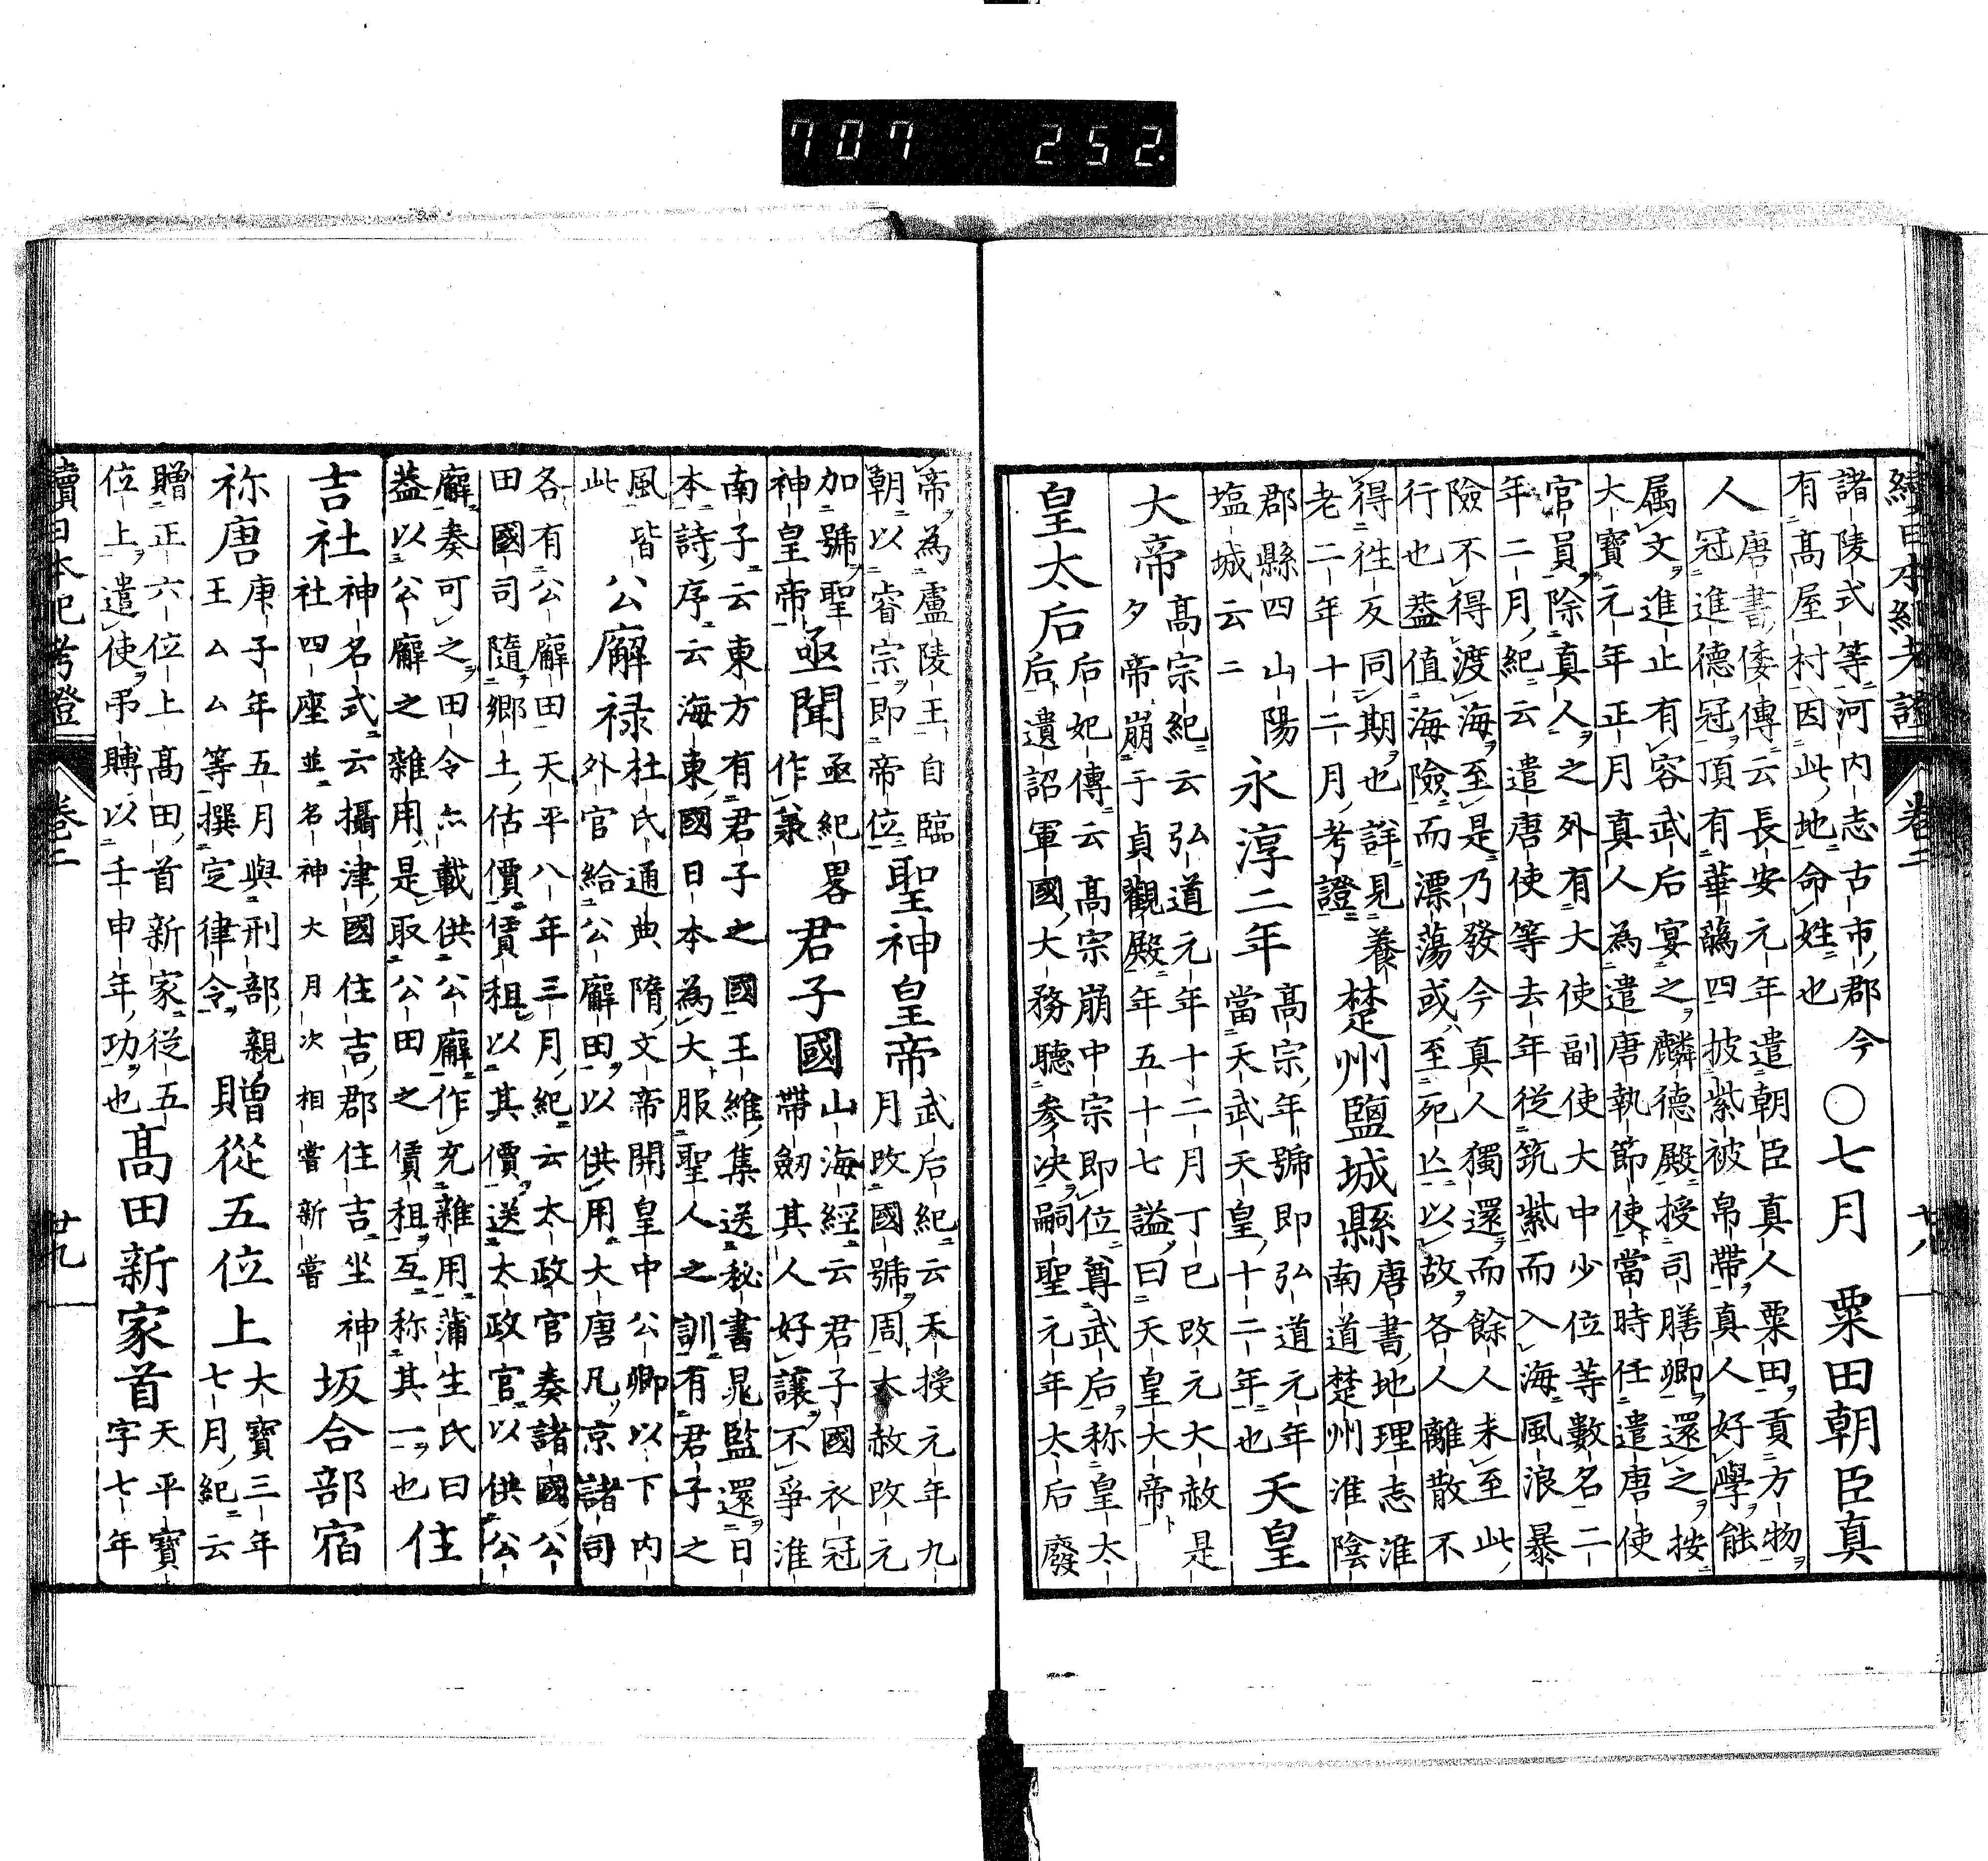 707 252.
續日本紀考證 卷二 廿八
諸陵式等河内志古市郡今
有髙屋村因此地命姓也
〇七月 粟田朝臣真
人
唐書倭傳云長安元年遣朝臣真人粟田貢方物
冠進德冠頂有華蘤四披紫被帛帶真人好學能
属文進止有容武后宴之麟德殿授司膳卿還之按
大寶元年正月真人為遣唐執節使當時任遣唐使
官員除真人之外有大使副使大中少位等數名二
年二月紀云遣唐使等去年從筑紫而入海風浪暴
險不得渡海至是乃發今真人獨還而餘人未至此
行也葢值海險而漂蕩或至死亾以故各人離散不
得徃反同期也詳見養
老二年十二月考證
楚州鹽城縣
唐書地理志淮
南道楚州淮陰
郡縣四山陽
塩城云ニ
永淳二年
高宗年號即弘道元年
當天武天皇十二年也
天皇
大帝
髙宗紀云弘道元年十二月丁巳改元大赦是
夕帝崩于貞觀殿年五十七謚曰天皇大帝
皇太后
后妃傳云高宗崩中宗即位尊武后称皇太
后遺詔軍國大務聽参决嗣聖元年太后廢
帝為盧陵王自臨
朝以睿宗即帝位
聖神皇帝
武后紀云天授元年九
月改國號周大赦改元
加號聖
神皇帝
亟聞
亟紀畧
作承
君子國
山海經云君子國衣冠
帶劒其人好讓不爭淮
南子云東方有君子之國王維集送秘書晁監還日
本詩序云海東國日本為大服聖人之訓有君子之
風皆
此
公廨禄
杜氏通典隋文帝開皇中公卿以下内
外官給公廨田以供用大唐凡京諸司
各有公廨田天平八年三月紀云太政官奏諸國公
田國司隨鄉土估價賃租以其價送太政官以供公
廨奏可之田令亦載供公廨作充雜用蒲生氏曰
葢以公廨之雜用是取公田之賃租互称其一也
住
吉社
神名式云攝津國住吉郡住吉坐神
社四座並名神大月次相嘗新嘗
坂合部宿
祢唐
庚子年五月與刑部親
王厶厶等撰定律令
贈從五位上
大寶三年
七月紀云
贈正六位上髙田首新家從五
位上遣使弔賻以壬申年功也
髙田新家首
天平寶
字七年
續日本紀考證 卷二 廿九